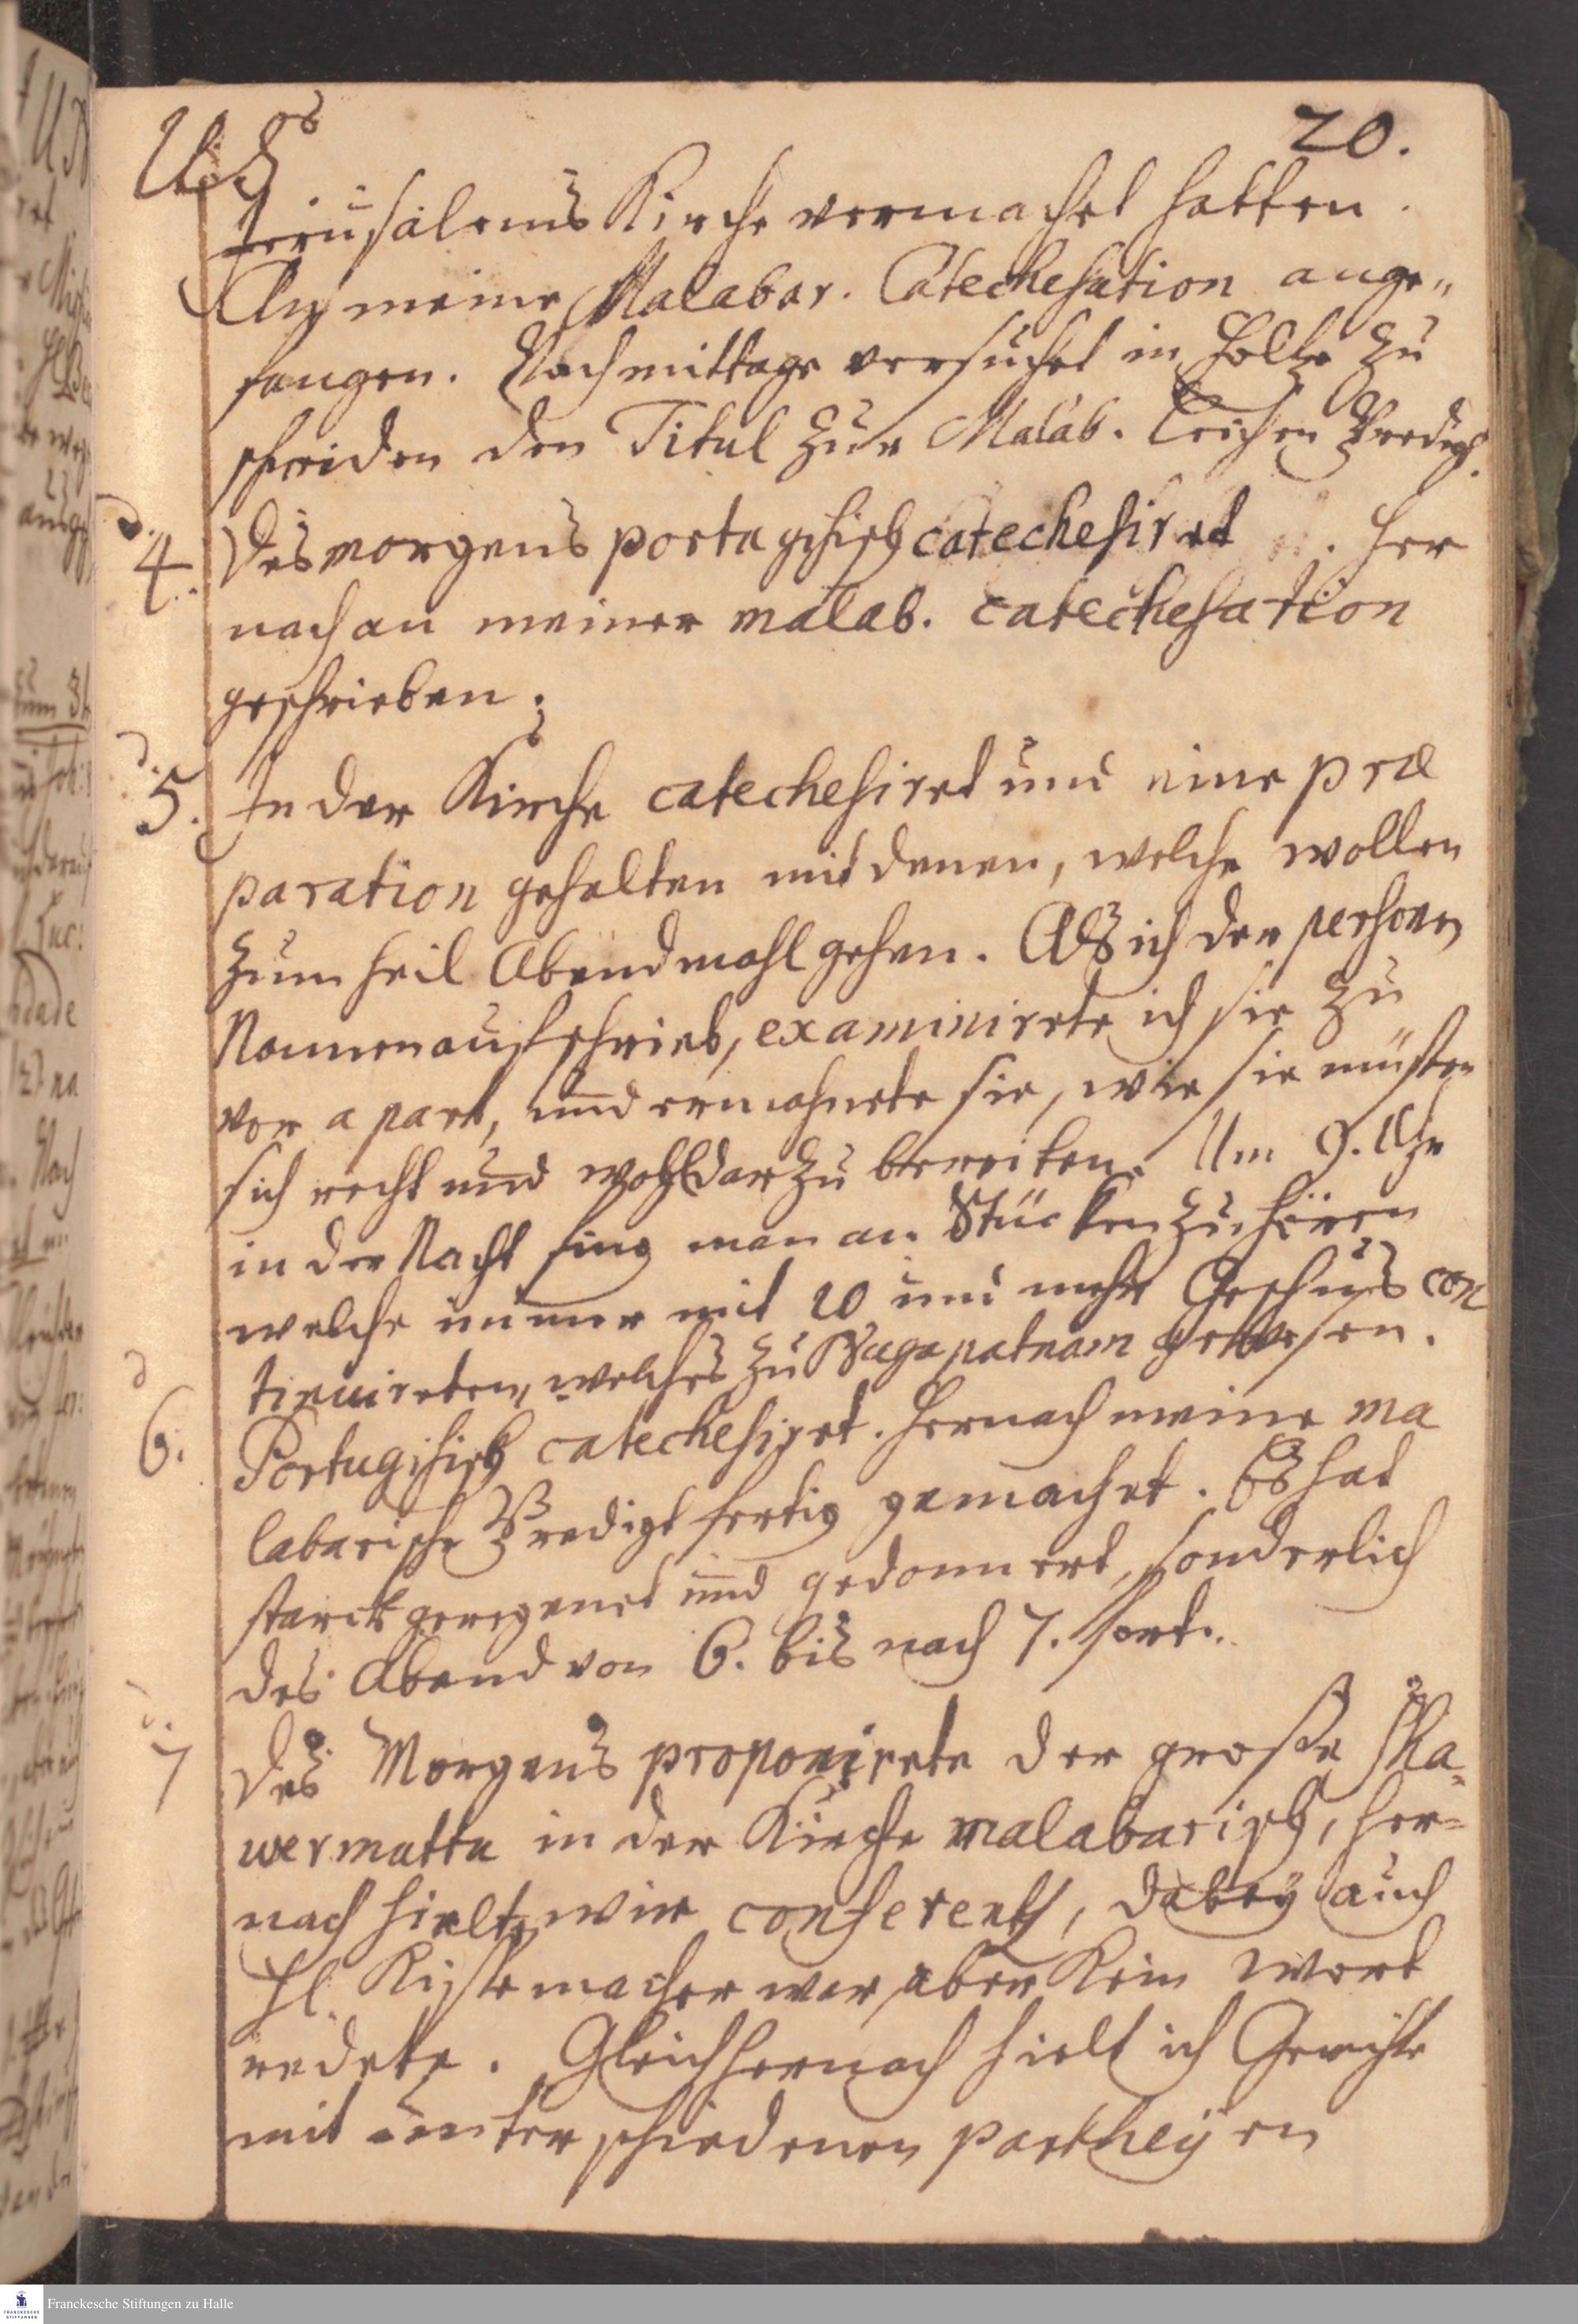 20.
Jerusalems Kirche vermachet hatten.
An meine Malabar. Catechesation ange„
fangen. Nachmittage versuchet in Holtz zu
schneiden den Titul zur Malab. Leichen Predigt.
d. 4. Des morgens portugisisch catechesiret. Her
nach an meiner malab. catechesation
geschrieben.
d. 5. In der Kirche catechesiret und eine præ
paration gehalten mit denen, welche wollen
zum heil Abendmahl gehen. Als ich der persohnen
Nammen aufschrieb, examinirete ich sie zu
vor a part, und ermahnete sie, wie sie müsten
sich recht und wohl darzu bereiten. Um 9. Uhr
in der Nacht fing man an Stücken zu hören
welche immer mit 20 und mehr Geschüs con
tinuireten, welches zu Nagapatnam gewesen.
d. 6. Portugisisch catechesiret. Hernach meine ma
labarische Predigt fertig gemachet. Es hat
starck geregenet und gedonnert, sonderlich
des Abend von 6. bis nach 7. fort.
d. 7 Des Morgens proponirete der große
in der Kirche malabarisch, her=
nach hielte wir conferentz, dabey auch
H. Kistemacher war, aber kein wort
redete. Gleich hernach hielt ich Gerichte
mit unterschiedenen partheyen
Franckesche Stiftungen zu Halle